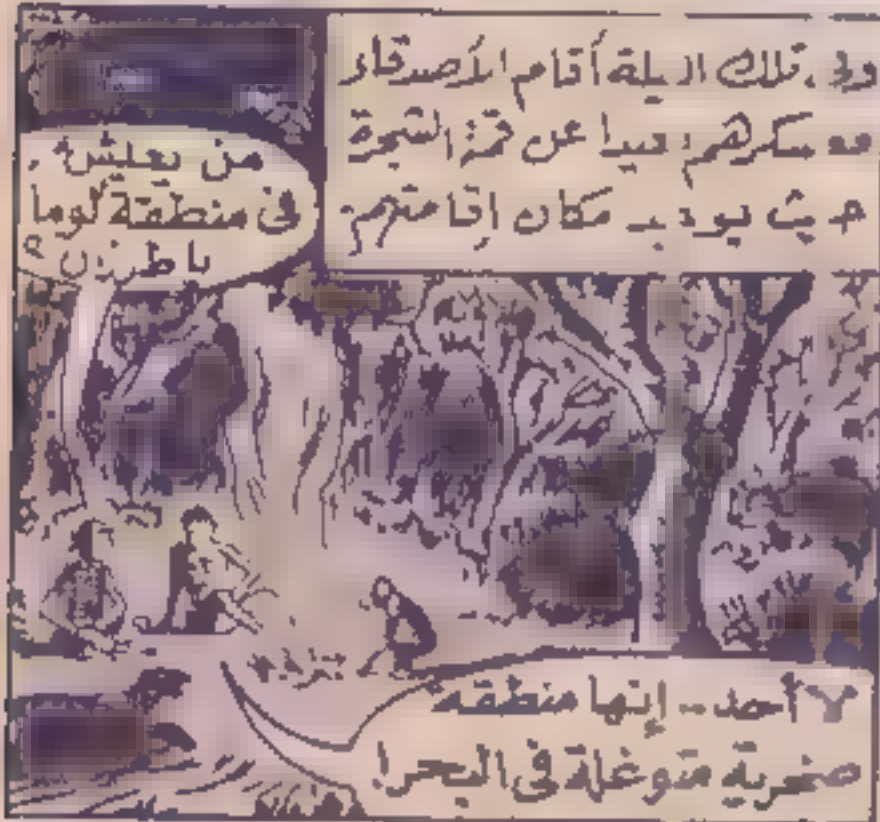 وفى تلك الليلة أقام الأصدقاء
معسكرهم بعيدا عن قمة الشجرة
حيث يوجد مكان إقامتهم
من يعيش
فى منطقة لوما
يا طرزن ؟
لا أحد .. إنها منطقة
صخرية متوغلة فى البحر!